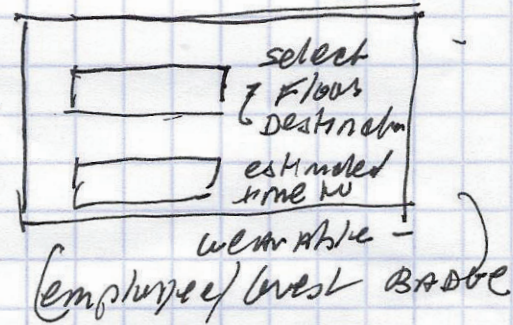 select
Floor
Destination
estimated
time to
wearable -
(employee/Guest BADGE)